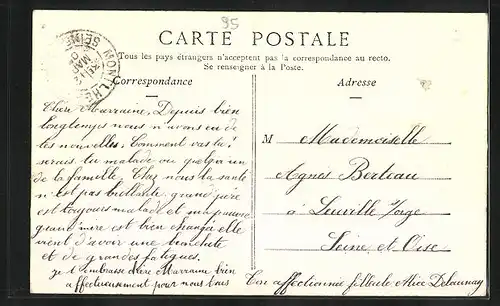 95
CARTE POSTALE
Tous les pays étrangers n'acceptent pas la correspondance au recto.
Se renseigner à la Poste.
Correspondance
Adresse
MONTLHÉRY
SEINE
MAR
Chère Marraine, Depuis bien
longtemps nous n'avons eu de
tes nouvelles. Comment vas tu?
serais tu malade ou quelqu'un
de la famille. Chez nous la santé
n'est pas brillante, grand père
est toujours malade et ma pauvre
grand mère est bien changée elle
vient d'avoir une
et de grandes fatigues.
je t'embrasse chère Marraine bien
affectueusement pour nous tous
Ton affectionnée filleule Alice Delaunay
M Mademoiselle
Agnès Berteau
à Leuville s/orge
Seine et Oise